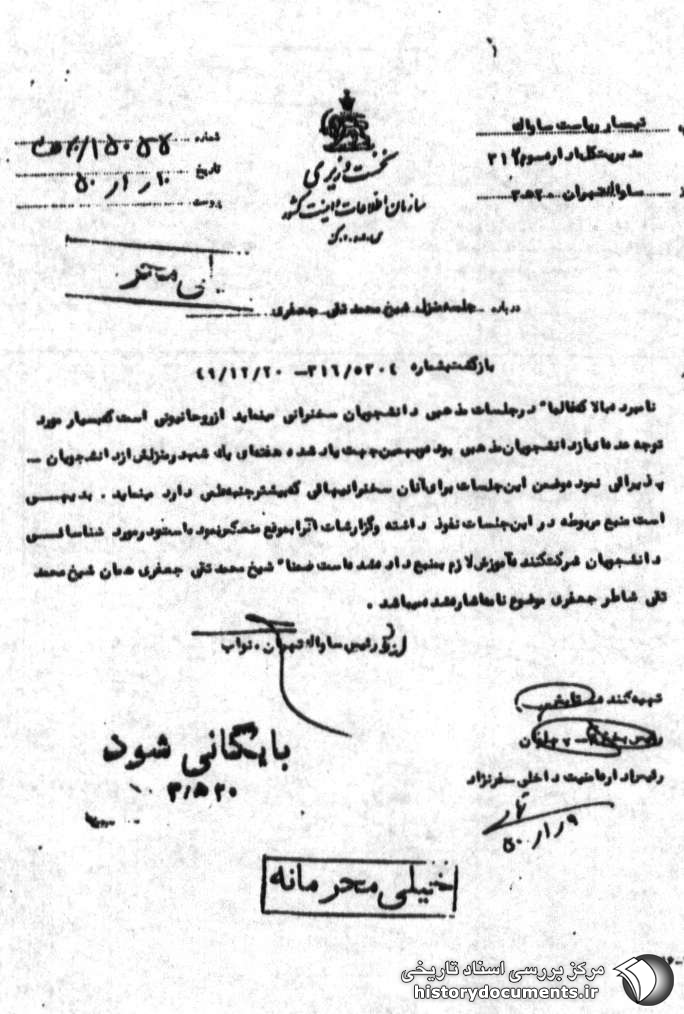 تیمسار ریاست ساواک
مدیریت کل اداره سوم ۳۱۲
ساواک تهران ۲۰ ه ۳
شماره
تاریخ ۱۰ / ۱ / ۵۰
پیوست
نخست وزیری
سازمان اطلاعات و امنیت کشور
س.ا.و.ا.ک
درباره جلسه منزل شیخ محمد تقی جعفری
بازگشت بشماره ۳۱۲/۵۳۰٤ – ٤۹/۱۲/۲۰
نامبرده بالا که غالبا" در جلسات مذهبی دانشجویان سخنرانی مینماید از روحانیونی است که بسیار مورد
توجه عده ای از دانشجویان مذهبی بوده و بهمین جهت یاد شده هفته ای یک شب در منزلش از دانشجویان –
پذیرائی نموده و ضمن این جلسات برای آنان سخنرانیهائی که بیشتر جنبه علمی دارد مینماید . بدیهی
است منبع مربوطه در این جلسات نفوذ داشته و گزارشات آنرا بموقع منعکس نموده است و در مورد شناسائی
دانشجویان شرکت کننده آموزش لازم بمنبع داده شده است ضمنا" شیخ محمد تقی جعفری همان شیخ محمد
تقی شاطر جعفری موضوع نامه اشاره شده میباشد .
رئیس ساواک تهران . نواب
تهیه کننده
رئیس بخش
رئیس اداره امنیت داخلی
۹ / ۱ / ۵۰
بایگانی شود
خیلی محرمانه
مرکز بررسی اسناد تاریخی
historydocuments.ir